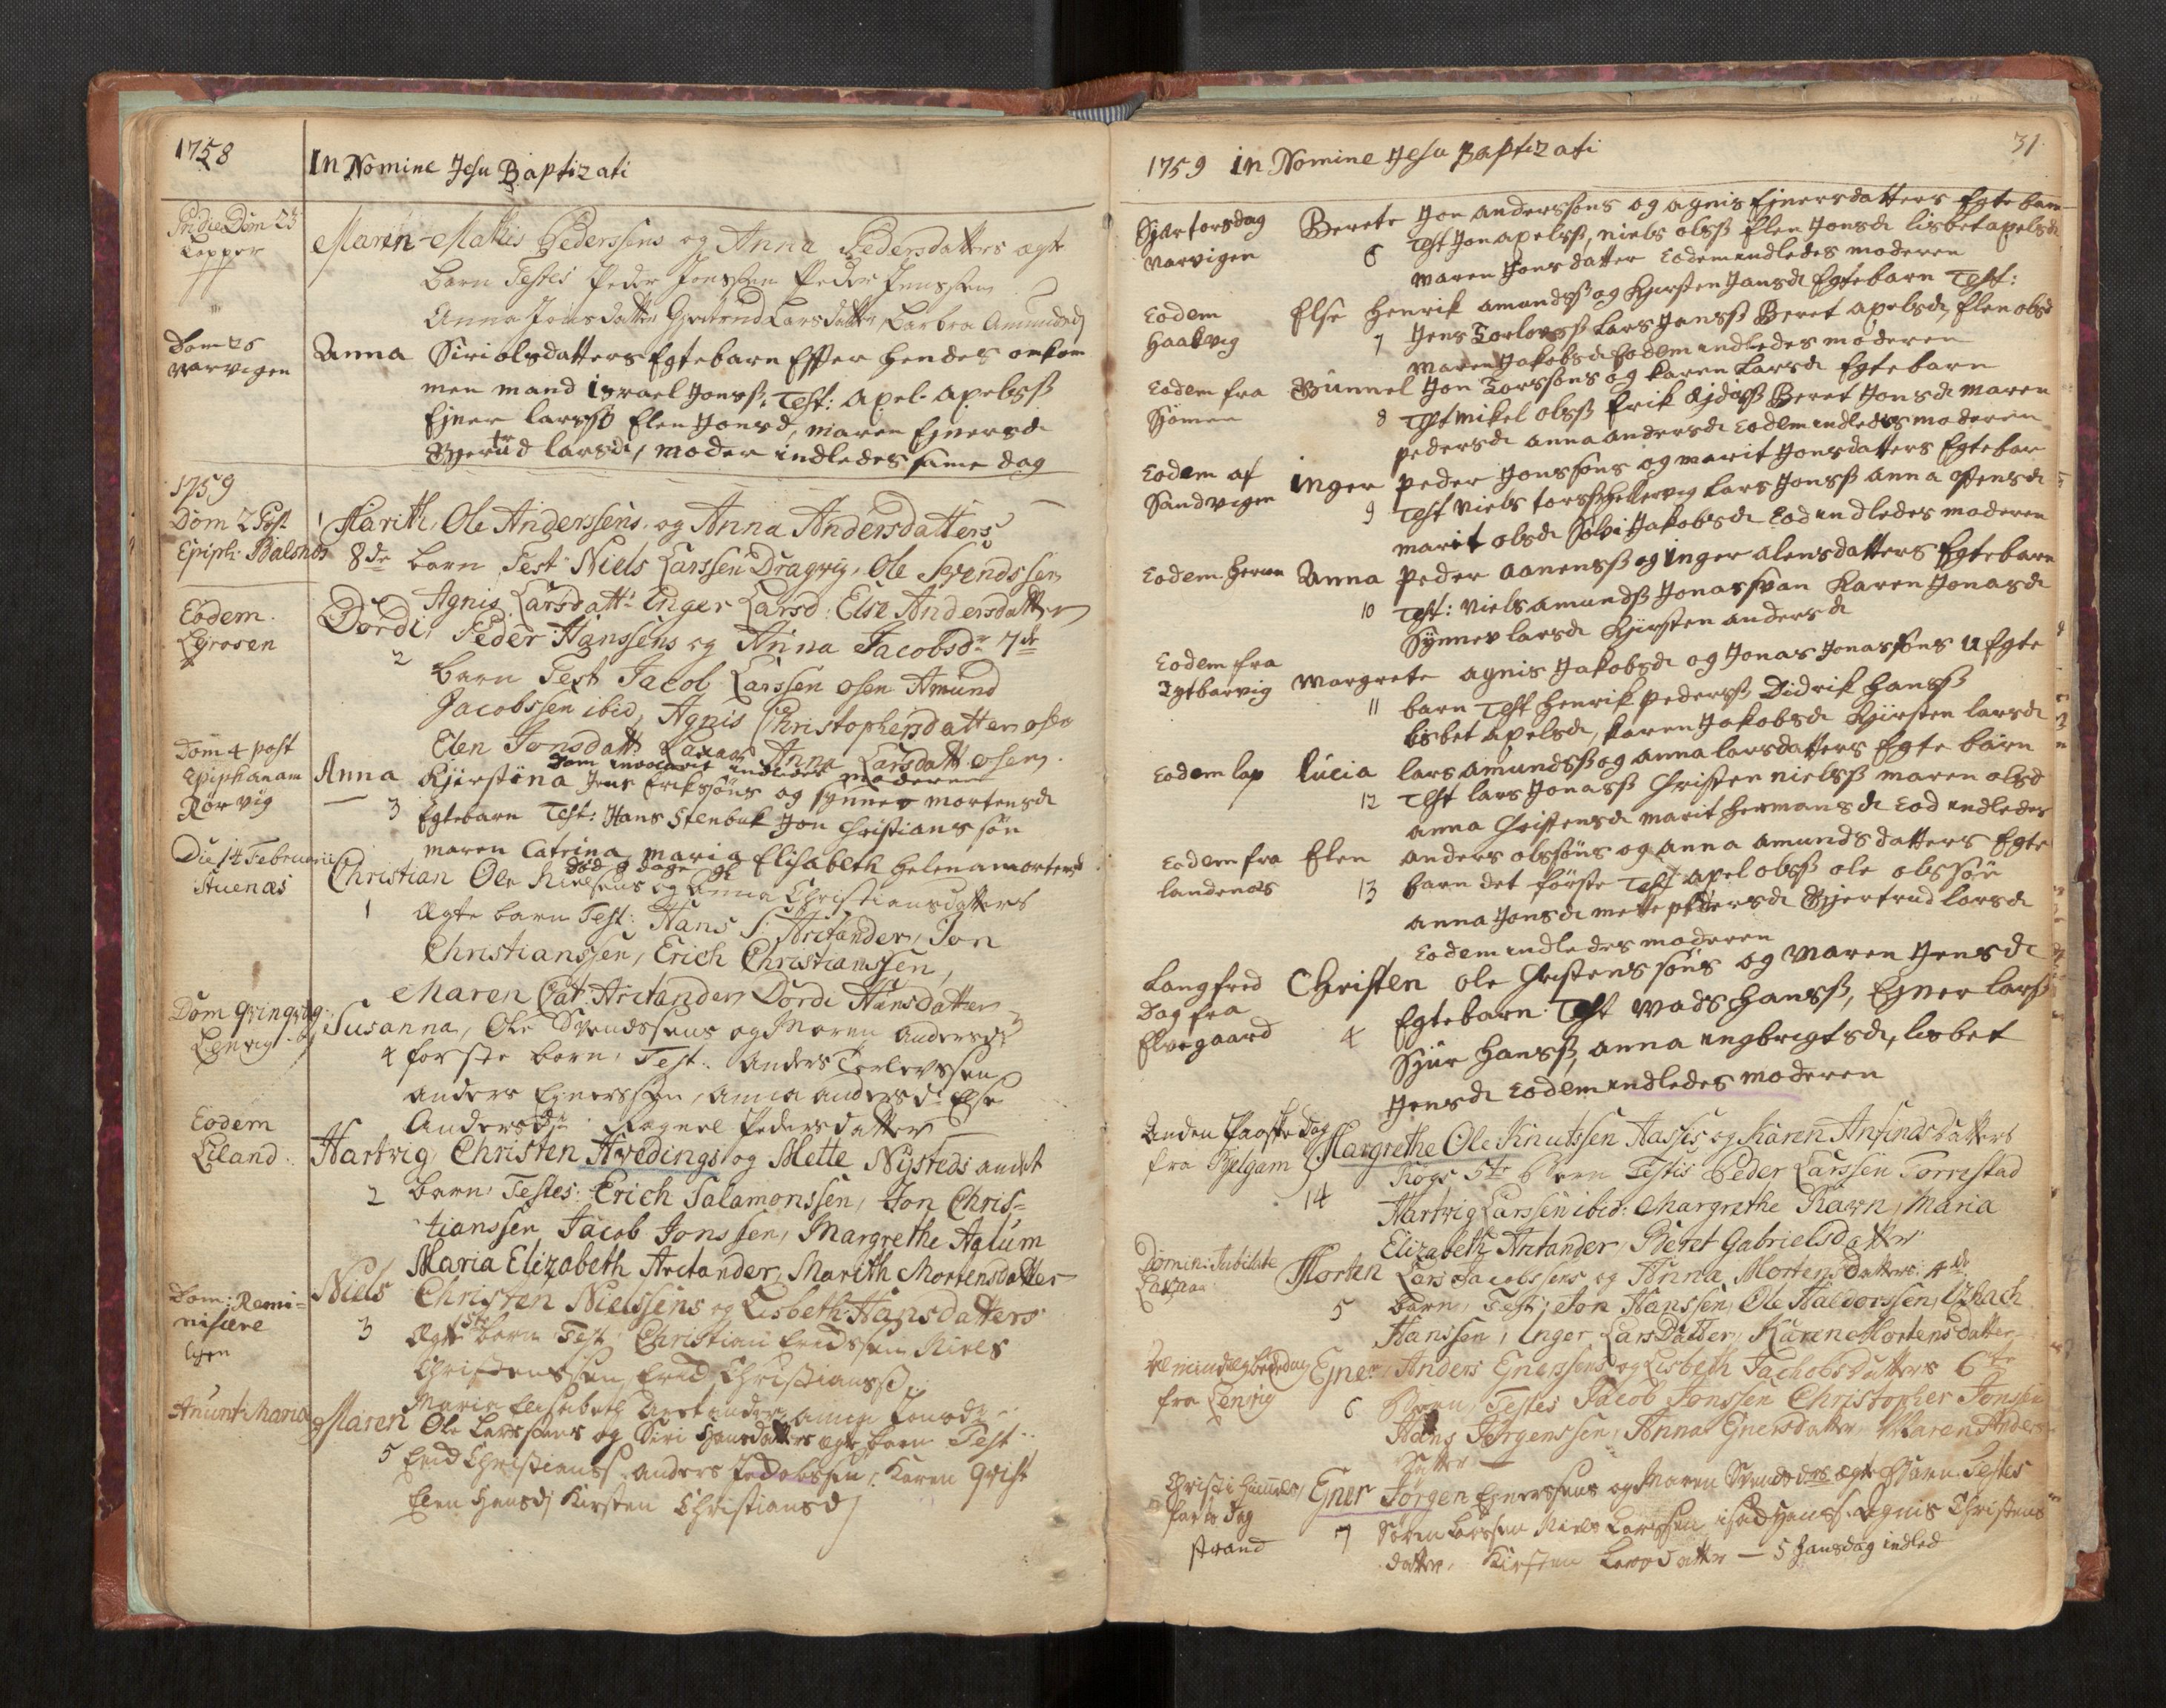 1758
In Nomine Jesu Baptizati
Pridie Dom 23
Marin-Mathis Pedersens og Anna Pedersdatters ægte
barn Testes Peder Jonssen Peder Jenssen
Anna Jonsdatter Larsdatter, Barbra Amundsd
Dom 26
varvigen
Anna Siri olsdatters Egtebarn Efter hendes omkom
men mand israel Jonsß, Test: apel apelsß
Ejner larsßß Elen Jonsd, maren Ejnersd
larsd, moder indledes same dag
1759
Dom 2 Post
Epiph: Bialsnes
1 Marith, Ole Anderssens og Anna Andersdatters
8de barn Test Niels Larssen Dragvig, Ole Svendssen
Agnis Larsdattr Inger Larsd Else Andersdatter
Eodem
Dordi, Peder Hanssens og Anna Jacobsdr 7de
2 barn Test Jacob Larssen osen Amund
Jacobssen ibid, Agnis Christophersdatter osen
Elen Jonsdattr Laxaae Anna Larsdattr osen
Dom invocavit indledes moderen
Dom 4 post
Epiphanam
Rørvig
Anna Kjerstina Jens Erikssøns og synnev mortensd
3 Egtebarn Test: Hans Stenbuk Jon Christianssøn
maren Catrina maria Elisabeth helena mortensd
død 9 dage gl
Die 14 Februarii
Stuenæs
Christian Ole Nielsens og Anna Christiansdatters
1 Ægte barn Test: Hans S: Arctander, Jon
Christianssen, Erich Christianssen,
Maren Cat: Arctander Dordi Hansdatter
Dom qvinqvag
Lenvig
Susanna, Ole Svendssens og Maren Andersd
4 første barn, Test: Anders Torlevssen
anders Ejnerssen, anna andersd Else
Andersd Ragnel Pedersdatter
Eodem
Liland
Hartvig, Christen Hvedings og Mette Nysteds andet
2 barn, Testes: Erich Salamonssen, Jon Chris=
tianssen Jacob Jonssen, Margrethe Aglum
Maria Elizabeth Arctander, Marith Mortensdatter
Dom: Remi=
niscere
Niels Christen Nielssens og Lisbeth Hansdatters
3 Ægte barn Test: Christian Ericssen Niels
Christenssen, Erich Christiansß
Maria Elisabeth Arctander, anna Jonsd
Anunt: Maria
Maren Ole Larssens og Siri Hansdatters ægte barn Test:
5 Erich Christianss. Anders Jacobssen, Karen Qvist
Elen Hansd Kirsten Christiansd
31
1759 in Nomine Jesu Baptizati
Sjærtorsdag
varvigen
Berete Jon anderssøns og agnis Ejnersdatters Egte barn
6 Test Jon apelsß, niels olsß Elen Jonsd lisbet apelsd
maren Jonsdatter Eodem indledes moderen
Eodem
Haakvig
Else Henrik amundsß og Kjersten Jansd Egtebarn Test:
7 Jens Torlevsß lars Jansß Beret apelsd, Elen olsd
maren Jakobsd Eodem indledes moderen
Eodem fra
Sjomen
Gunnel Jon Larssøns og karen Larsd Egtebarn
8 Test mikel olsß Erik Beret Jonsd maren
pedersd anna andersd Eodem indledes moderen
Eodem af
Sandvigen
inger peder Jonssøns og marit Jonsdatters Egtebar
9 Test niels larsß hellervig lars Jonsß anna
marit olsd Jakobsd Eod indledes moderen
Eodem
Anna peder aanensß og inger alensdatters Egtebarn
10 Test: niels amundsß Jonas svan karen Jonasd
Synnev larsd Kjersten andersd
Eodem fra
margrete agnis Jakobsd og Jonas Jonassøns uEgte
11 barn Test Henrik pedersß Didrik Hansß
lisbet apelsd, karen Jakobsd Kjirsten larsd
Eodem lap
lucia lars amundsß og anna larsdatters Egte barn
12 Test lars Jonasß Christen nielsß maren olsd
anna Christensd marit hermansd Eod indledes
Eodem fra
landenæs
Elen anders olssøns og anna amundsdatters Egte
13 barn det første Test apel olsß ole olssøn
anna Jonsd mette pedersd Gjertrud larsd
Eodem indledes moderen
Langfred
Dag fra
Elvegaard
Christen ole Christenssøns og maren Jensd
4 Egtebarn Test mads Hansß, Ejner larsß
Sjur Hansß, anna ingbrigtsd, lisbet
Jensd Eodem indledes moderen
Anden Paaske Dag
Margrethe Ole Knutssen Aasses og Karen Anfindsdatters
14 5te Børn Testis Peder Larssen Torrestad
Hartvig Larssen ibid: Margrethe Ravn, Maria
Elizabeth Arctander, Beret Gabrielsdatter
Domin: Jubilate
Morten Lars Jacobssens og Anna Mortensdatters 4de
5 barn, Test: Jon Hanssen, Ole Haldorssen,
Hanssen, Inger LarsDatter, Karen Mortensdatter
Almindelig bededag
fra Lenvig
Ejner, Anders Ejnerssens og Lisbeth Jachobsdatters 6te
6 Børn, Testes Jacob Jonssen Christopher Jonssen
Hans Jørgenssen, Anna Ejnersdatter, Maren Anders
datter
Christi Himmel
farts Dag
strand
Ejner Jørgen Ejnerssens og Maren Svendsdrs ægte Barn Testes
7 Søren Larssen Niels Larssen Hanss. Agnis Christens
datter, Kirsten Larsdatter — 5 Jansdag indled